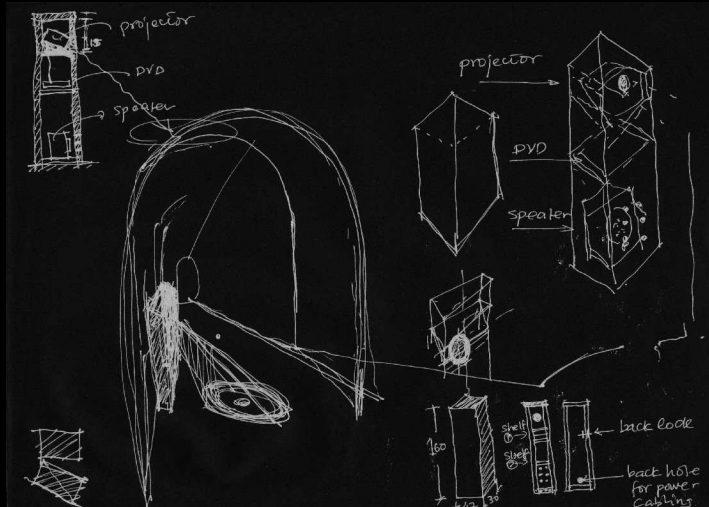 projector
15
DVD
speater
projector
DVD
speater
160
30
shelf
1
shelf
2
back lode
back hole
for power
cabling